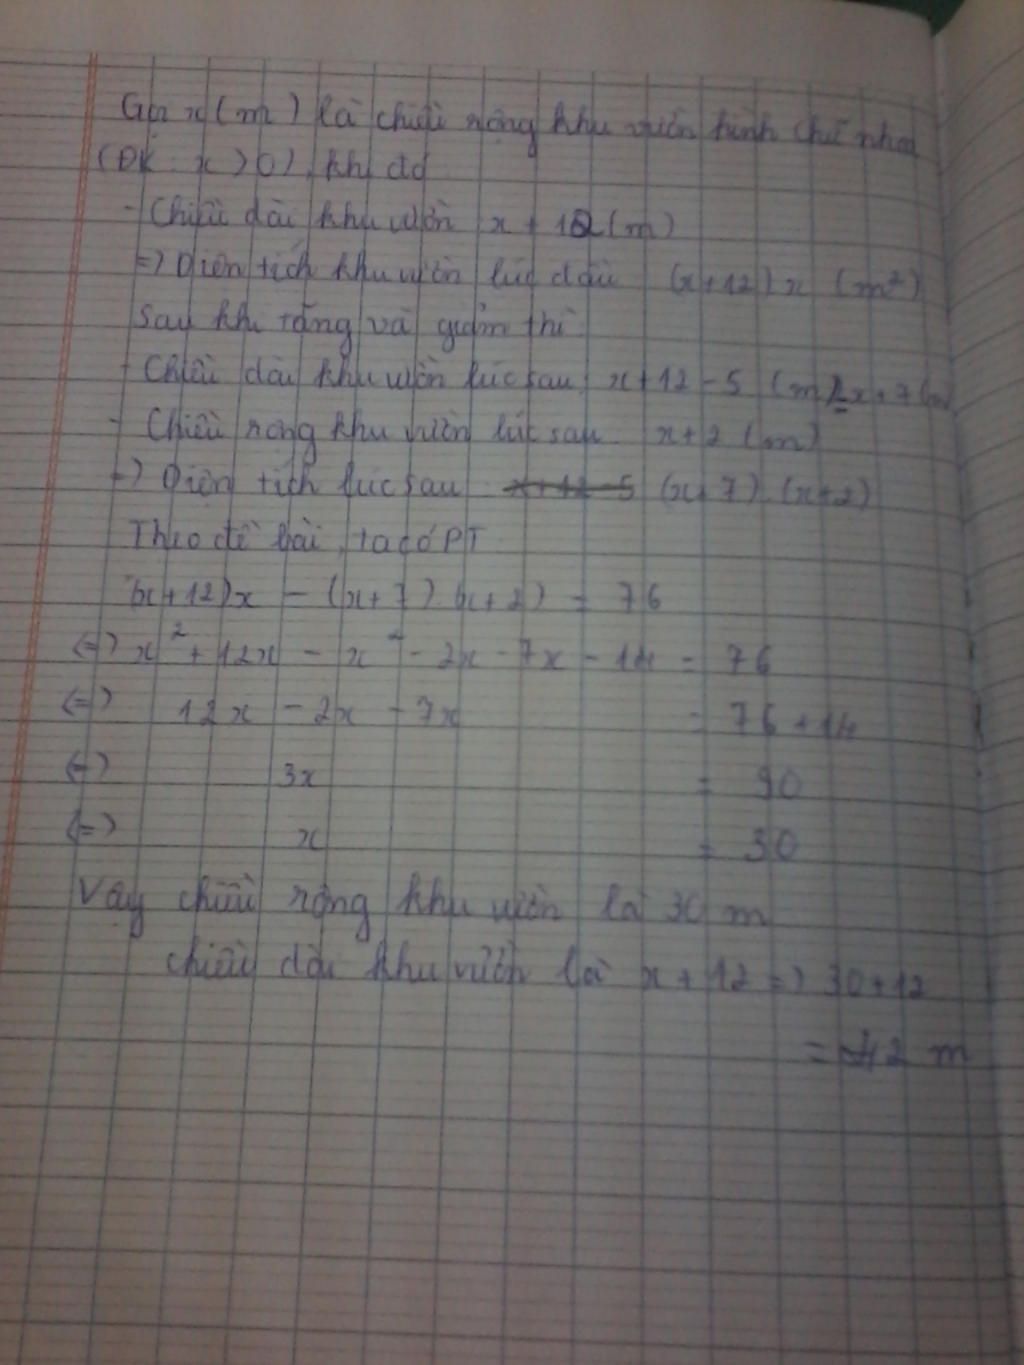 Gọi x (m) là chiều rộng khu vườn hình chữ nhật
(ĐK: x > 0), khi đó
- Chiều dài khu vườn x + 12 (m)
=> Diện tích khu vườn lúc đầu (x+12) x (m²)
Sau khi tăng và giảm thì:
- Chiều dài khu vườn lúc sau x + 12 - 5 (m) = x + 7 (m)
- Chiều rộng khu vườn lúc sau x + 2 (m)
=> Diện tích lúc sau (x+7).(x+2)
Theo đề bài, ta có PT
(x+12)x - (x+7).(x+2) = 76
<=> x² + 12x - x² - 2x - 7x - 14 = 76
<=> 12x - 2x - 7x = 76 + 14
<=> 3x = 90
<=> x = 30
Vậy chiều rộng khu vườn là 30 m
chiều dài khu vườn là x + 12 => 30 + 12
= 42 m